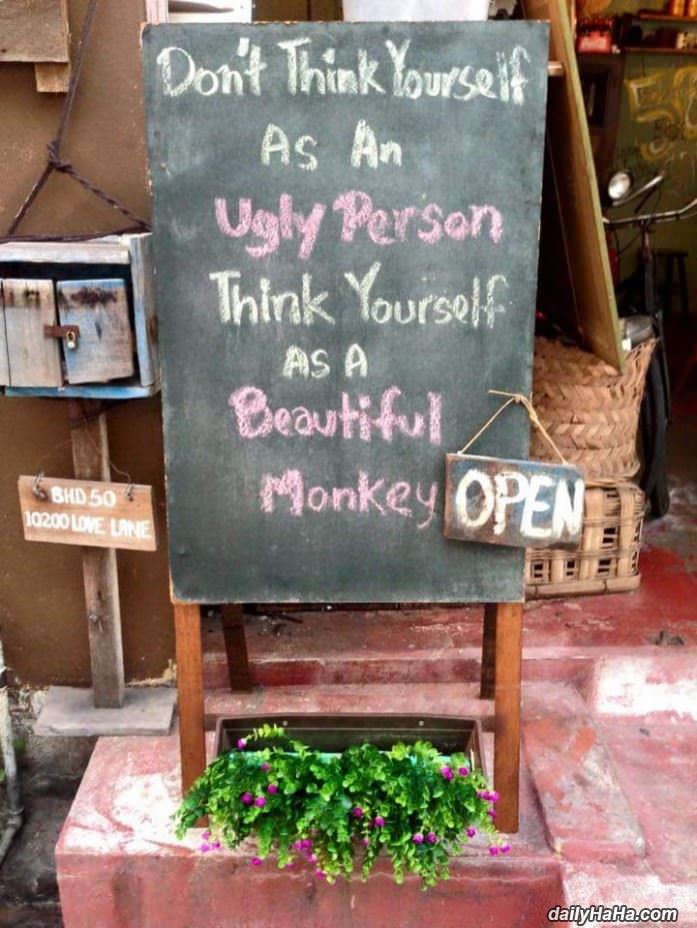 Don't Think Yourself
As An
Ugly Person
Think Yourself
As A
Beautiful
Monkey
OPEN
BHD 50
10200 LOVE LANE
dailyHaHa.com